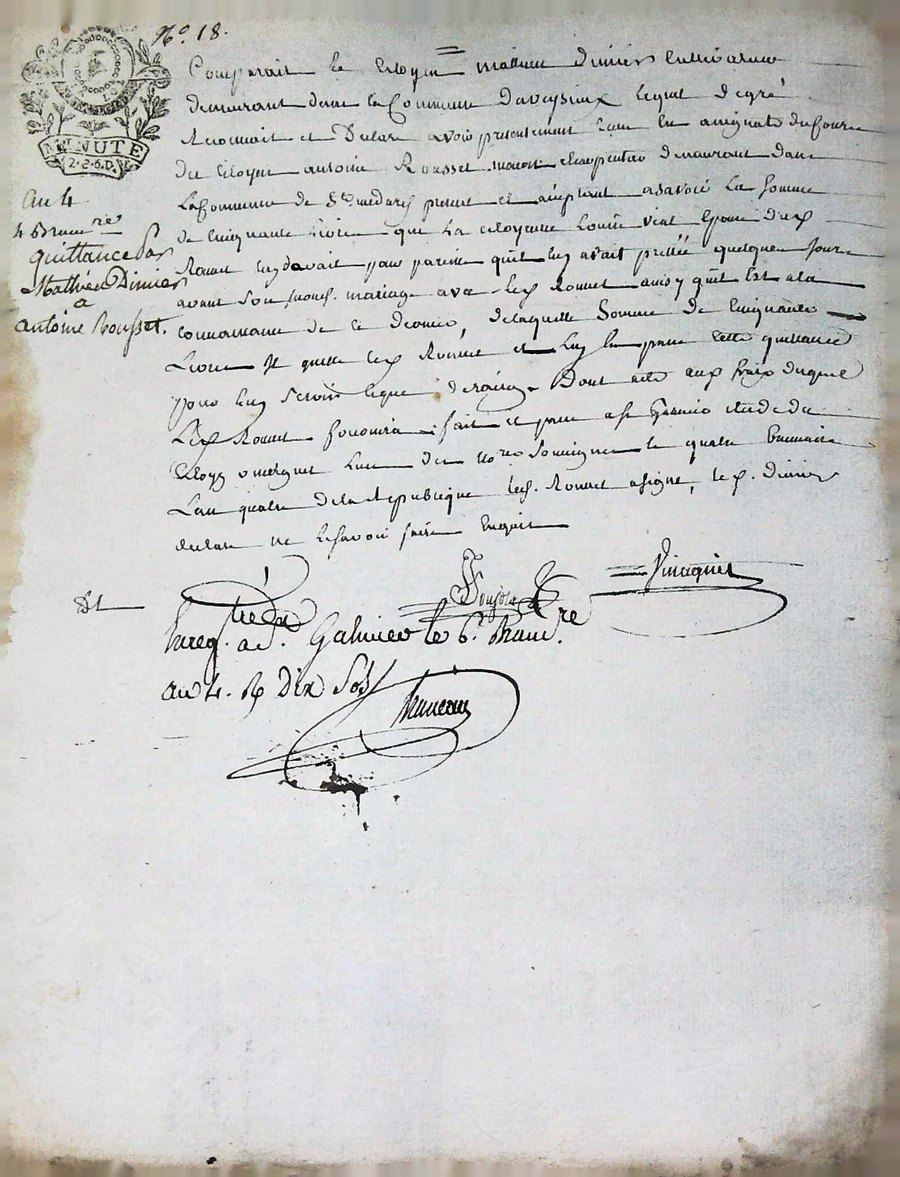 N.o 18.
MINUTE
2.S.6.D.
an 4
4 Brum.re
quittance par
Mathieu Dimier
a
antoine Rousset.
Comparait le citoyen mathieu dimier cultivateur
demeurant dans la Commune daveysieux lequel de gré
Reconnait et Declare avoir presentement Reçu en assignats du cours
du citoyen antoine Rousset charpentier demeurant dans
la Commune de St. medard present et acceptant asavoir La somme
de cinquante livres que La citoyenne Louise epouse dud.
Rousset luy devait pour pareille quil luy avait prettée quelques jours
avant son mariage avec led. Rousset ainsy quil Est a la
connaissance de ce dernier, de laquelle Somme de Cinquante
Livres Il quitte led. Rousset et luy En passe cette quittance
pour luy servir ce que de raison. Dont acte aux fraix duquel
Led. Rousset fournira fait et passé a St. Galmier etude du
citoyen Lun des no.res soussignés le quatre brumaire
Lan quatre de la Republique led. Rousset a signé, led. dimier
declare ne le savoir faire Enquis
Enreg. a St. Galmier le 6. Brum.re
an 4. R. Dix sols